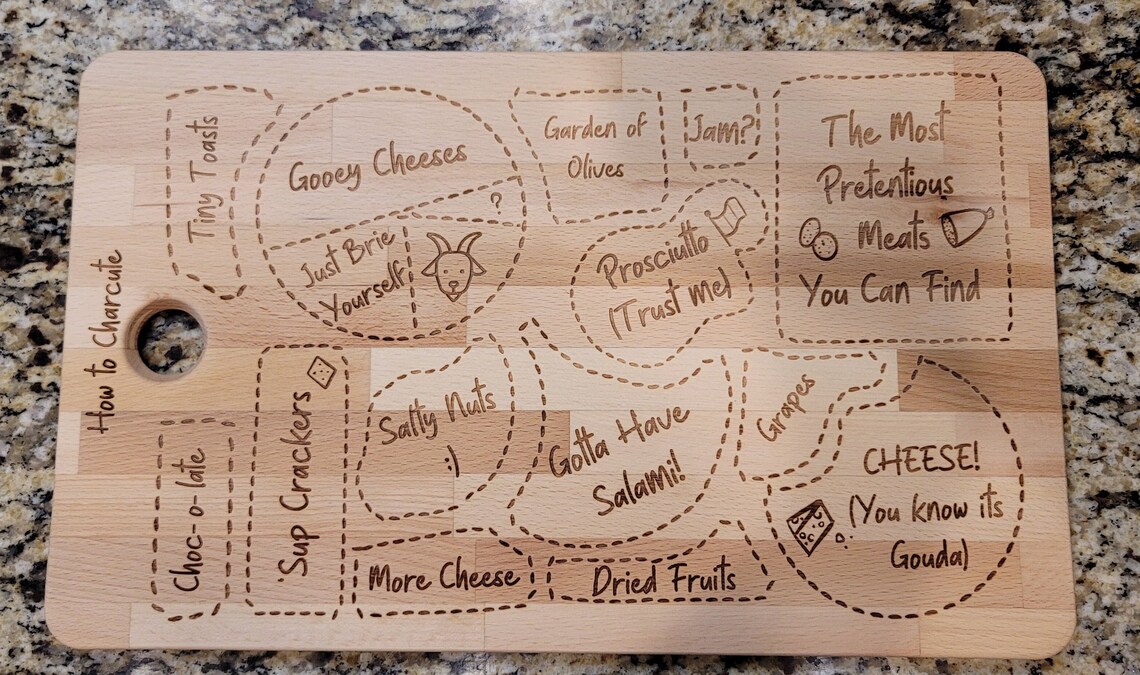 How to Charcute
Tiny Toasts
Gooey Cheeses
?
Just Brie
Yourself
Garden of
Olives
Jam?
Prosciutto
(Trust me)
The Most
Pretentious
Meats
You Can Find
Choc-o-late
'Sup Crackers
Salty Nuts
:)
Gotta Have
Salami!
Grapes
CHEESE!
(You know its
Gouda)
More Cheese
Dried Fruits